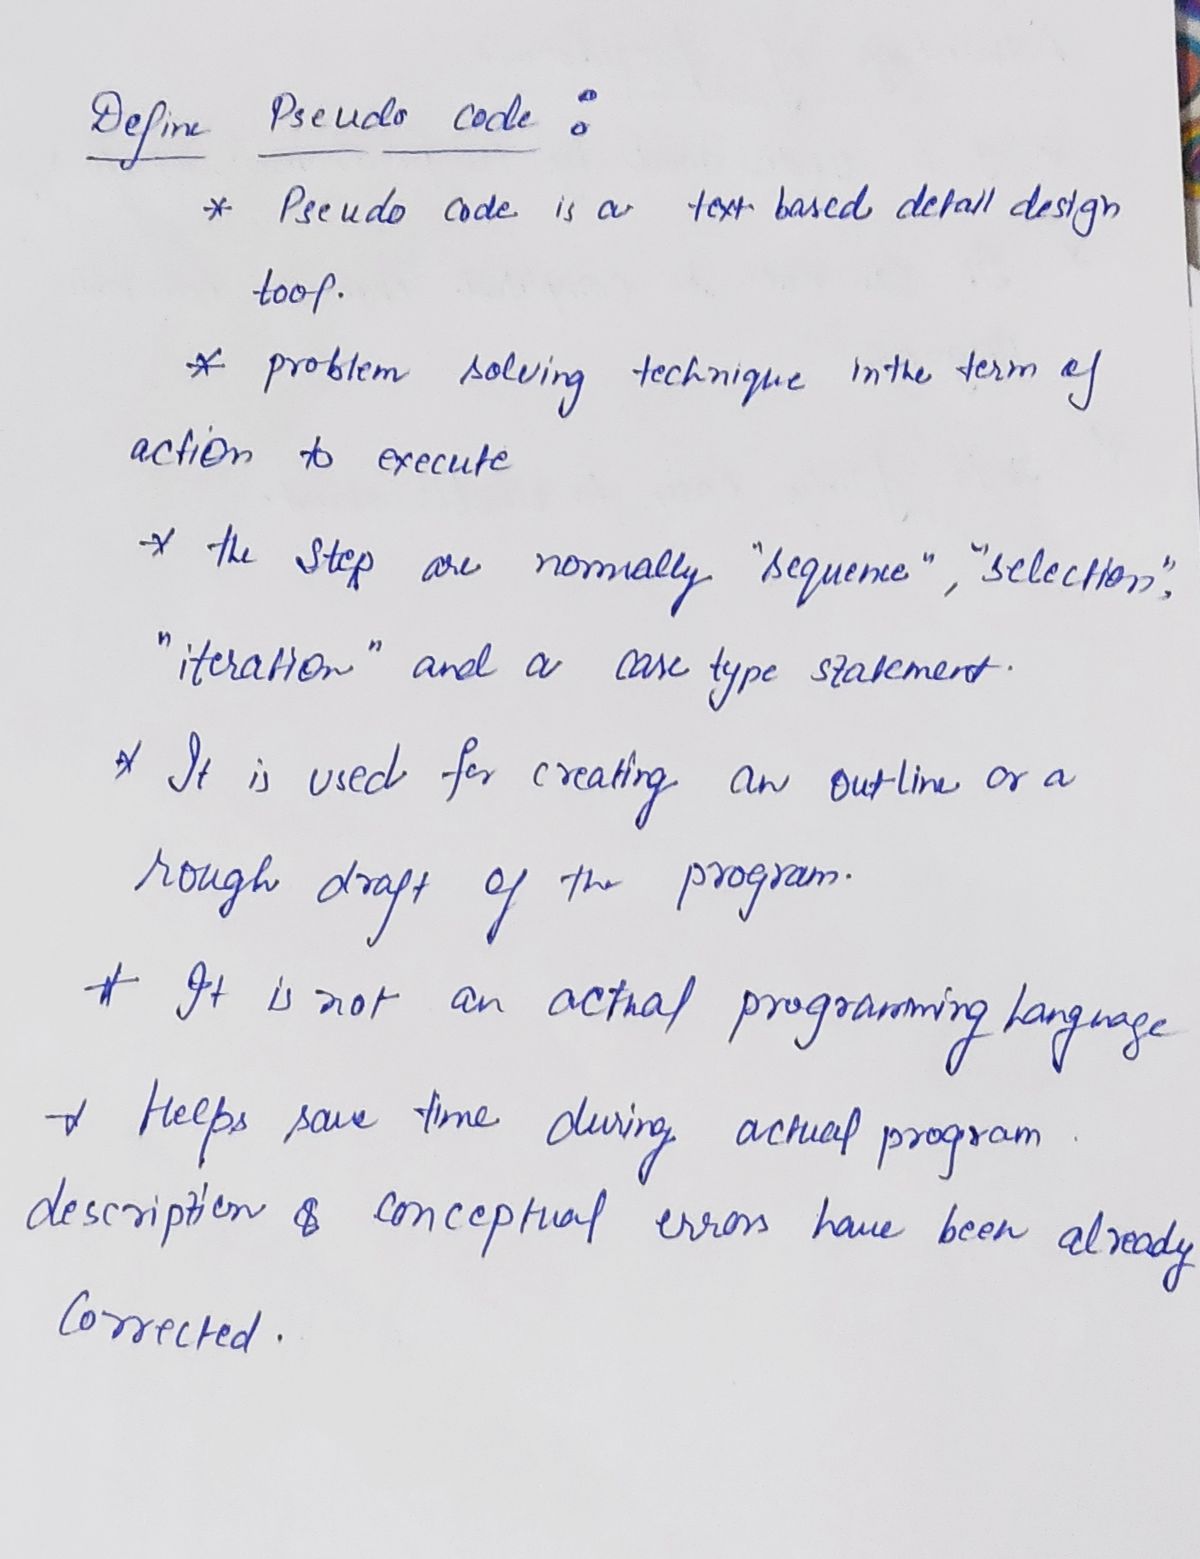 Define Pseudo code :
* Pseudo code is a text based detail design
tool.
* problem solving technique in the term of
action to execute
* the step are normally "sequence", "selection",
"iteration" and a case type statement.
* It is used for creating an outline or a
rough draft of the program.
* It is not an actual programming language
* Helps save time during actual program
description & conceptual errors have been already
Corrected.